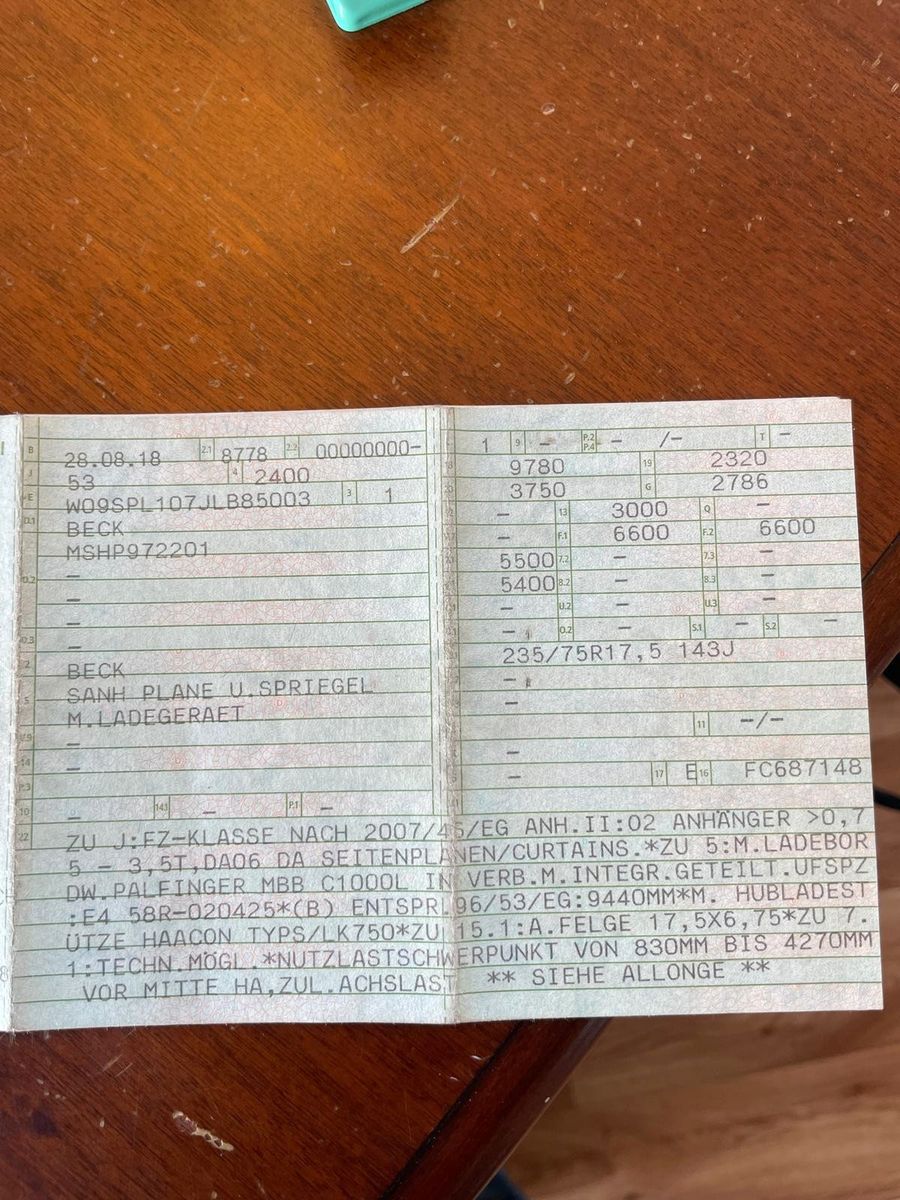 B 28.08.18 2.1 8778 2.2 00000000-
J 53 4 2400
E W09SPL107JLB85003 3 1
D.1 BECK
MSHP972201
D.2 –
–
–
D.3 –
2 BECK
5 SANH PLANE U.SPRIEGEL
M.LADEGERAET
V.9 –
14 –
P.3
10 – 14.1 – P.1 –
1 9 – P.2 P.4 – /– T –
18 9780 19 2320
20 3750 G 2786
12 – 13 3000 Q –
– F.1 6600 F.2 6600
5500 7.2 – 7.3 –
5400 8.2 – 8.3 –
– U.2 – U.3 –
– O.2 – S.1 – S.2 –
235/75R17,5 143J
–
–
11 –/–
–
– 17 E 16 FC687148
22 ZU J:FZ-KLASSE NACH 2007/46/EG ANH.II:O2 ANHÄNGER >0,7
5 – 3,5T,DA06 DA SEITENPLANEN/CURTAINS.*ZU 5:M.LADEBOR
DW.PALFINGER MBB C1000L IN VERB.M.INTEGR.GETEILT.UFSPZ
:E4 58R-020425*(B) ENTSPR.96/53/EG:9440MM*M. HUBLADEST
ÜTZE HAACON TYPS/LK750*ZU 15.1:A.FELGE 17,5X6,75*ZU 7.
1:TECHN.MÖGL.*NUTZLASTSCHWERPUNKT VON 830MM BIS 4270MM
VOR MITTE HA,ZUL.ACHSLAST ** SIEHE ALLONGE **